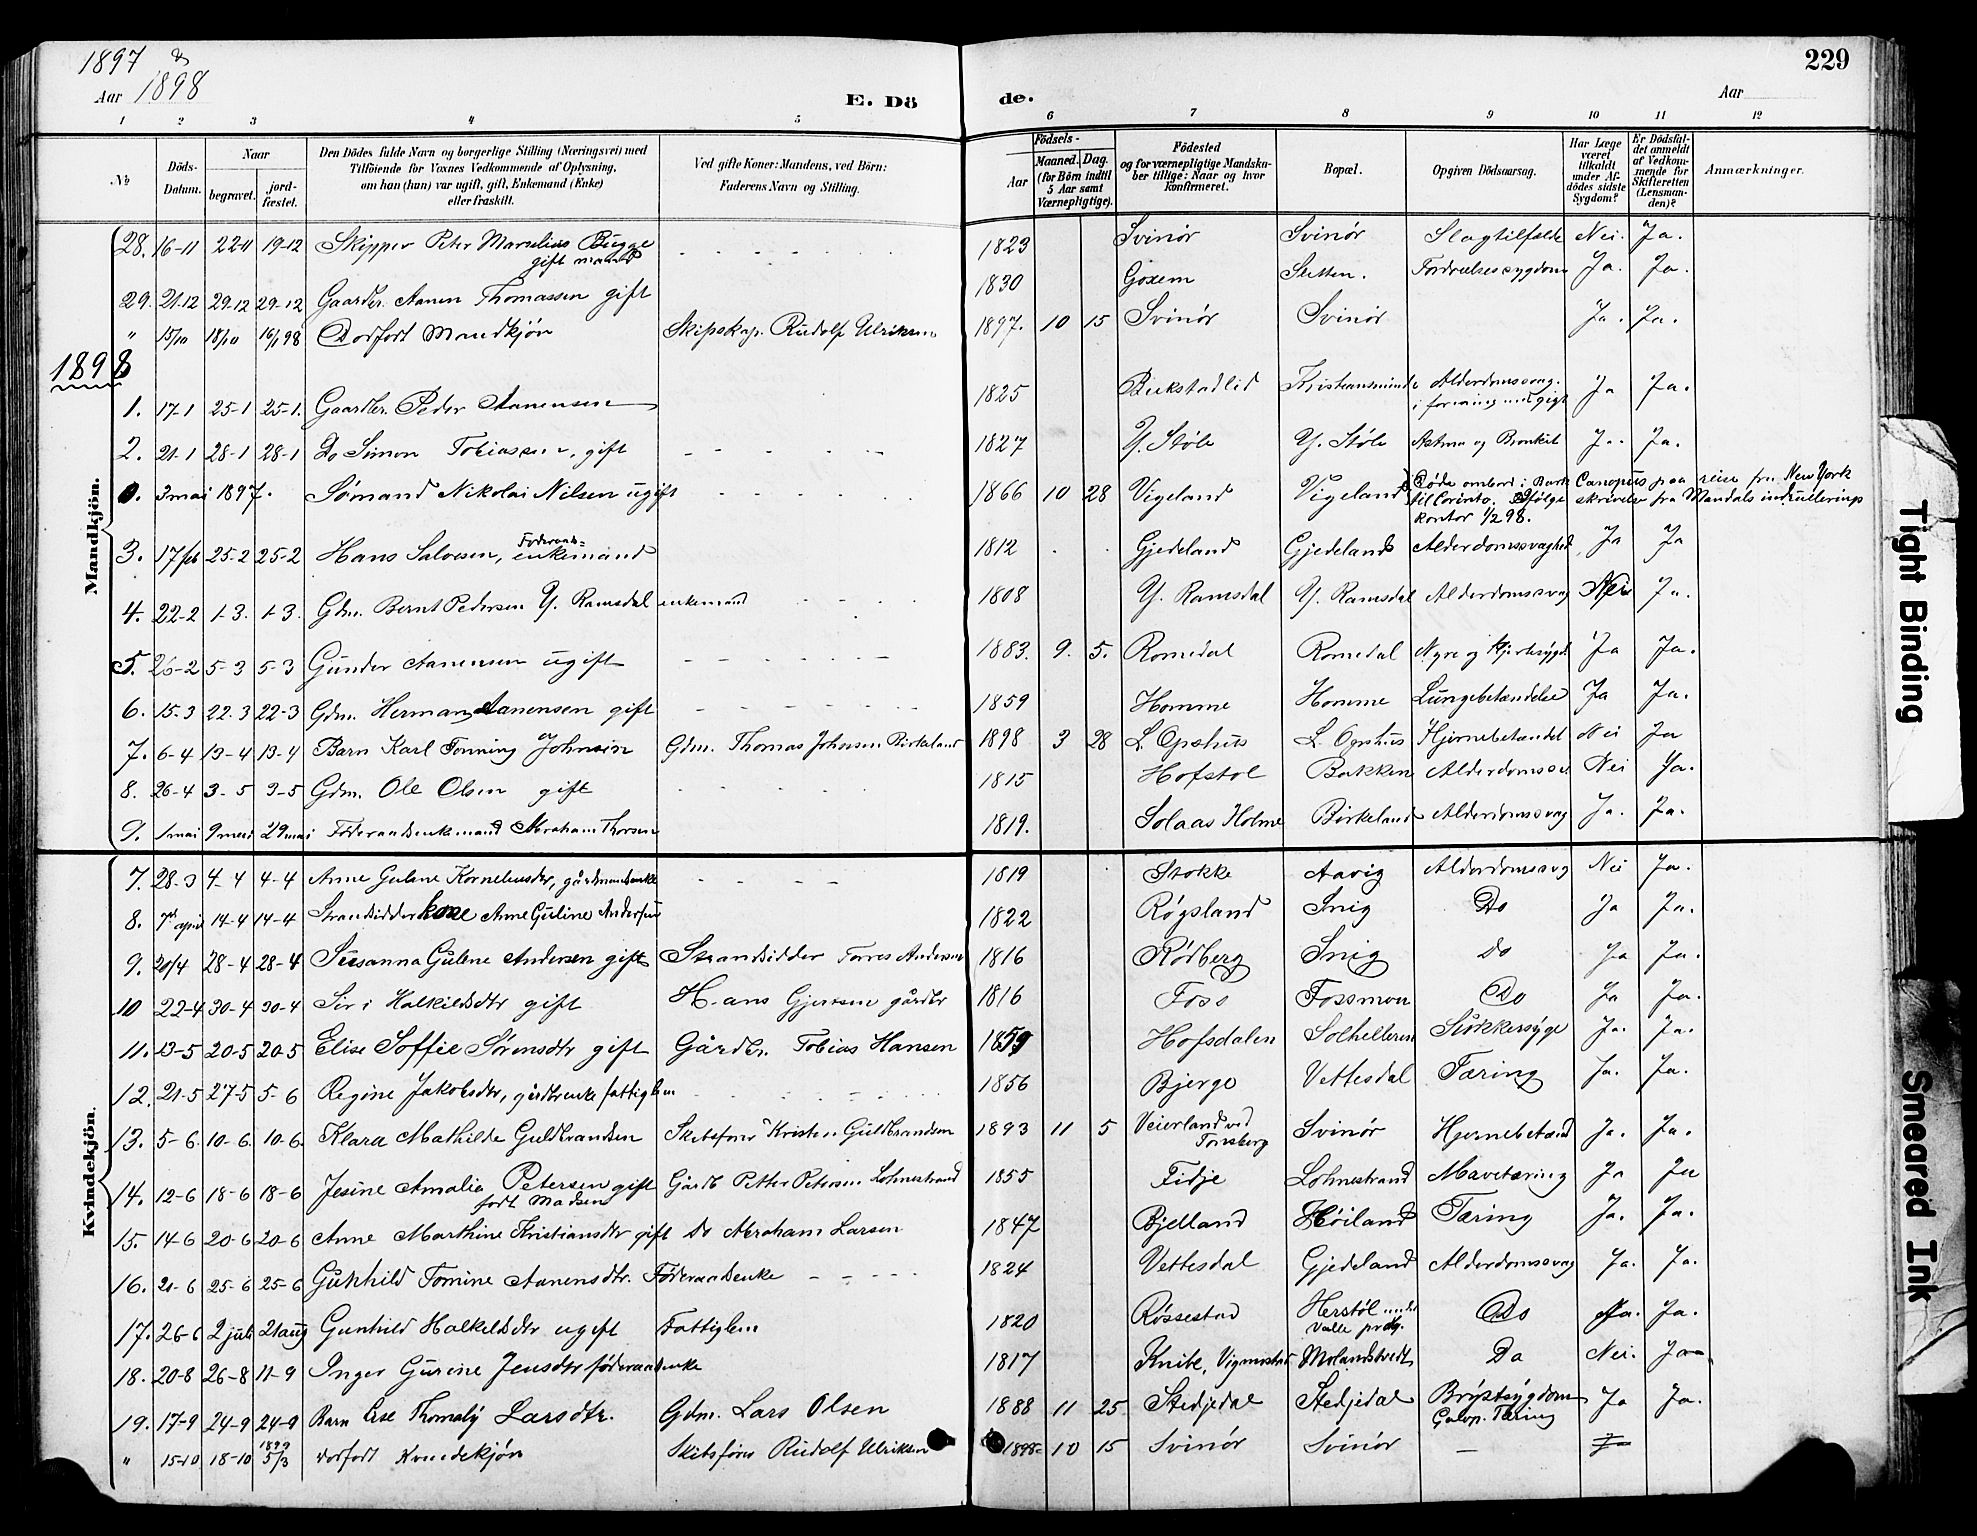 1897 &
Aar 1898
E. Dö
de.
Aar
229
1 2 3 4 5 6 7 8 9 10 11 12
No
Döds-Datum.
Naar
begravet.
jord-fæstet.
Den Dödes fulde Navn og borgerlige Stilling (Næringsvei) med
Tilföiende for Voxnes Vedkommende af Oplysning,
om han (hun) var ugift, gift, Enkemand (Enke)
eller fraskilt.
Ved gifte Koner: Mandens, ved Börn:
Faderens Navn og Stilling.
Födsels-
Aar
Maaned. Dag.
(for Börn indtil
5 Aar samt
Værnepligtige).
Födested
og for værnepligtige Mandska-
ber tillige: Naar og hvor
Konfirmeret.
Bopæl.
Opgiven Dödsaarsag.
Har Læge
været
tilkaldt
under Af-
dödes sidste
Sygdom?
Er Dödsfal-
det anmeldt
af Vedkom-
mende for
Skifteretten
(Lensman-
den)?
Anmærkninger.
Mandkjön.
28. 16-11 22-11 19-12 Skipper Peter Marselius Bugge gift mand 1823 Svinör Svinör Slagtilfælde Nei. Ja.
29. 21.12 29.12 29-12 Gaardbr. Aanen Thomassen gift 1830 Goxem Sletten. Ja. Ja.
" 15/10 18/10 16/1 98 Dødfødt Mandkjön Skipskap. Rudolf Ulriksen 1897. 10 15 Svinör Svinör Ja. Ja.
1898
1. 17-1 25-1 25-1. Gaardbr. Peder Aanensen 1825 Alderdomssvag. i forening med gigt Ja Ja.
2. 21-1 28-1 28-1 Do Simon Tobiassen, gift 1827 Y. Støle Y. Støle Astma og Bronkit Ja. Ja.
0. 3 mai 1897. Sømand Nikolai Nilsen ugift 1866 10 28 Vigeland Vigeland Døde ombord i Bark Canopus paa reise fra New York
til Corinto. Ifølge skrivelse fra Mandals indrulleringskontor 1/2 98.
3. 17 feb 25-2 25-2 Hans Salvesen, Føderaads-enkemand 1812 Gjedeland Gjedeland Alderdomssvaghed Ja Ja
4. 22-2 1-3. 1-3. Gdm. Bernt Pedersen Y. Ramsdal enkemand 1808 Y. Ramsdal Y. Ramsdal Alderdomssvag Nei Ja.
5. 26-2 5-3 5-3 Gunder Aanensen ugift 1883. 9. 5. Romedal Romedal Nyre og Hjertesygd. Ja Ja.
6. 15-3 22.3 22-3 Gdm. Herman Aanensen gift 1859 Homme Homme Lungebetændelse Ja Ja.
7. 6-4 13-4 13-4 Barn Karl Tonning Johnsen Gdm. Thomas Johnsen Birkeland 1898 3 28 L. Opshus L. Opshus Hjernebetændel Nei Ja
8. 26-4 3-5 3-5 Gdm. Ole Olsen gift 1815 Hofstol Bakken Alderdomssv Nei Ja.
9. 1 mai 9 mai 29 mai Føderaadsenkemand Abraham Thorsen 1819. Solaas Holme Birkeland Alderdomssvag Ja. Ja.
Kvindekjön.
7. 28-3 4-4 4-4 Anne Guline Korneliusdtr, gårdmandsenke 1819 Stokke Aavig Alderdomssvag Nei Ja.
8. 7d april 14-4 14-4 Strandsidderkone Anne Guline Andersen 1822 Røgsland Snig Do Ja Ja.
9. 20/4 28-4 28-4 Susanna Gulene Andersen gift Strandsidder Torres Andersen 1816 Rødberg Snig Do Ja Ja.
10 22-4 30-4 30-4 Siri Halkildsdtr gift Hans Gjertsen gårdbr 1816 Foss Fossmon Do Ja Ja.
11. 13-5 20-5 20-5 Elise Soffie Sørensdtr gift Gårdbr. Tobias Hansen 1859 Hofsdalen Solhelleren Sukkersyge Ja. Ja.
12. 21-5 27-5 5-6 Regine Jakobsdtr, gårdbrenke fattiglem 1856 Bjerge Vettesdal Tæring Ja. Ja.
13. 5-6. 10-6. 10-6. Klara Mathilde Guldbrandsen Skibsfører Kristen Guldbrandsen 1893 11 5 Veierland ved Tønsberg Svinör Hjernebetænd Ja. Ja.
14. 12-6 18-6 18-6 Jesine Amalie Petersen gift født Madsen Gårdb Petter Petersen Lohnestrand 1855 Fidje Lohnestrand Mavetæring Ja Ja
15. 14-6 20-6 20-6 Anne Marthine Kristiansdtr gift Do Abraham Larsen 1847 Bjelland Höiland Tæring Ja. Ja.
16. 21-6 25-6 25-6 Gunhild Tomine Aanensdtr. Føderaadsenke 1824 Vettesdal Gjedeland Alderdomssvag Ja. Ja.
17. 26-6 2 juli 21 aug Gunhild Halkildsdtr ugift Fattiglem 1820 Røssestad Herstöl Valle prstg. Do Ja. Ja.
18. 20-8 26-8 11-9 Inger Gurine Jensdtr føderaadsenke 1817 Knibe, Vigmostad Molandstvedt Do Nei. Ja
19. 17-9 24-9 24-9 Barn Larsdtr. Gdm. Lars Olsen 1888 11 25 Stedjedal Stedjedal Brystsygdom Galop. Tæring Ja Ja.
" 15-10 18-10 1899 5/3 Dødfødt Kvindekjön Skibsfører Rudolf Ulriksen 1898 10 15 Svinör Svinör — Ja
Tight Binding
Smeared Ink